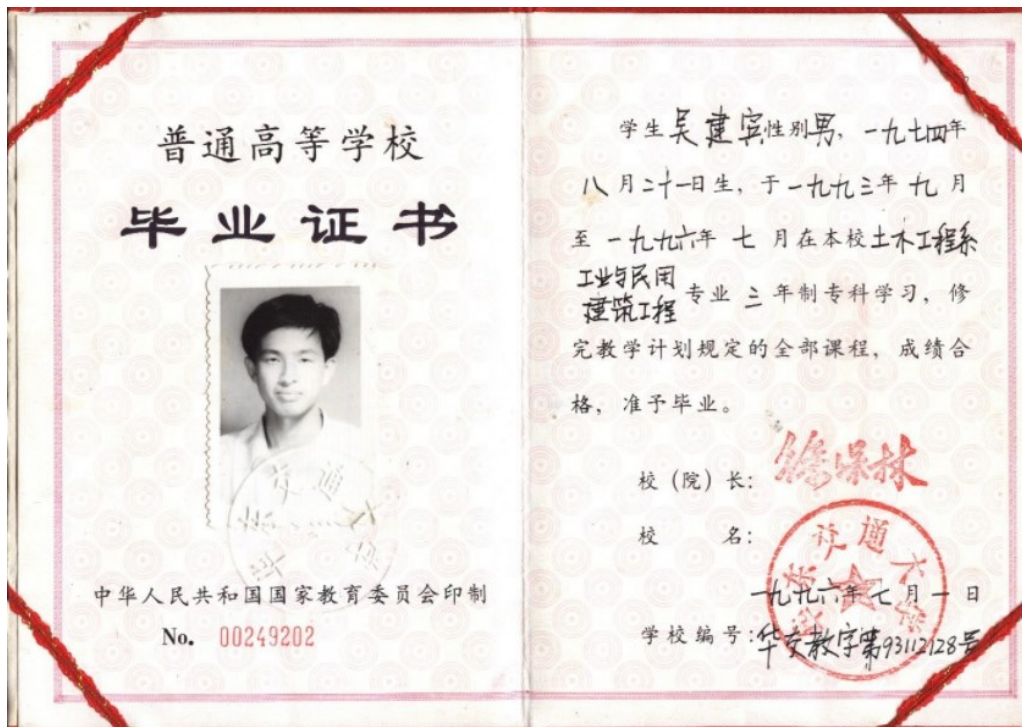 普通高等学校
毕业证书
中华人民共和国国家教育委员会印制
No. 00249202
学生吴建宾性别男，一九七四年
八月二十一日生，于一九九三年九月
至一九九六年七月在本校土木工程系
工业与民用
建筑工程专业三年制专科学习，修
完教学计划规定的全部课程，成绩合
格，准予毕业。
校（院）长：
校名：
华东交通大学
一九九六年七月一日
学校编号：华交教字第93112128号